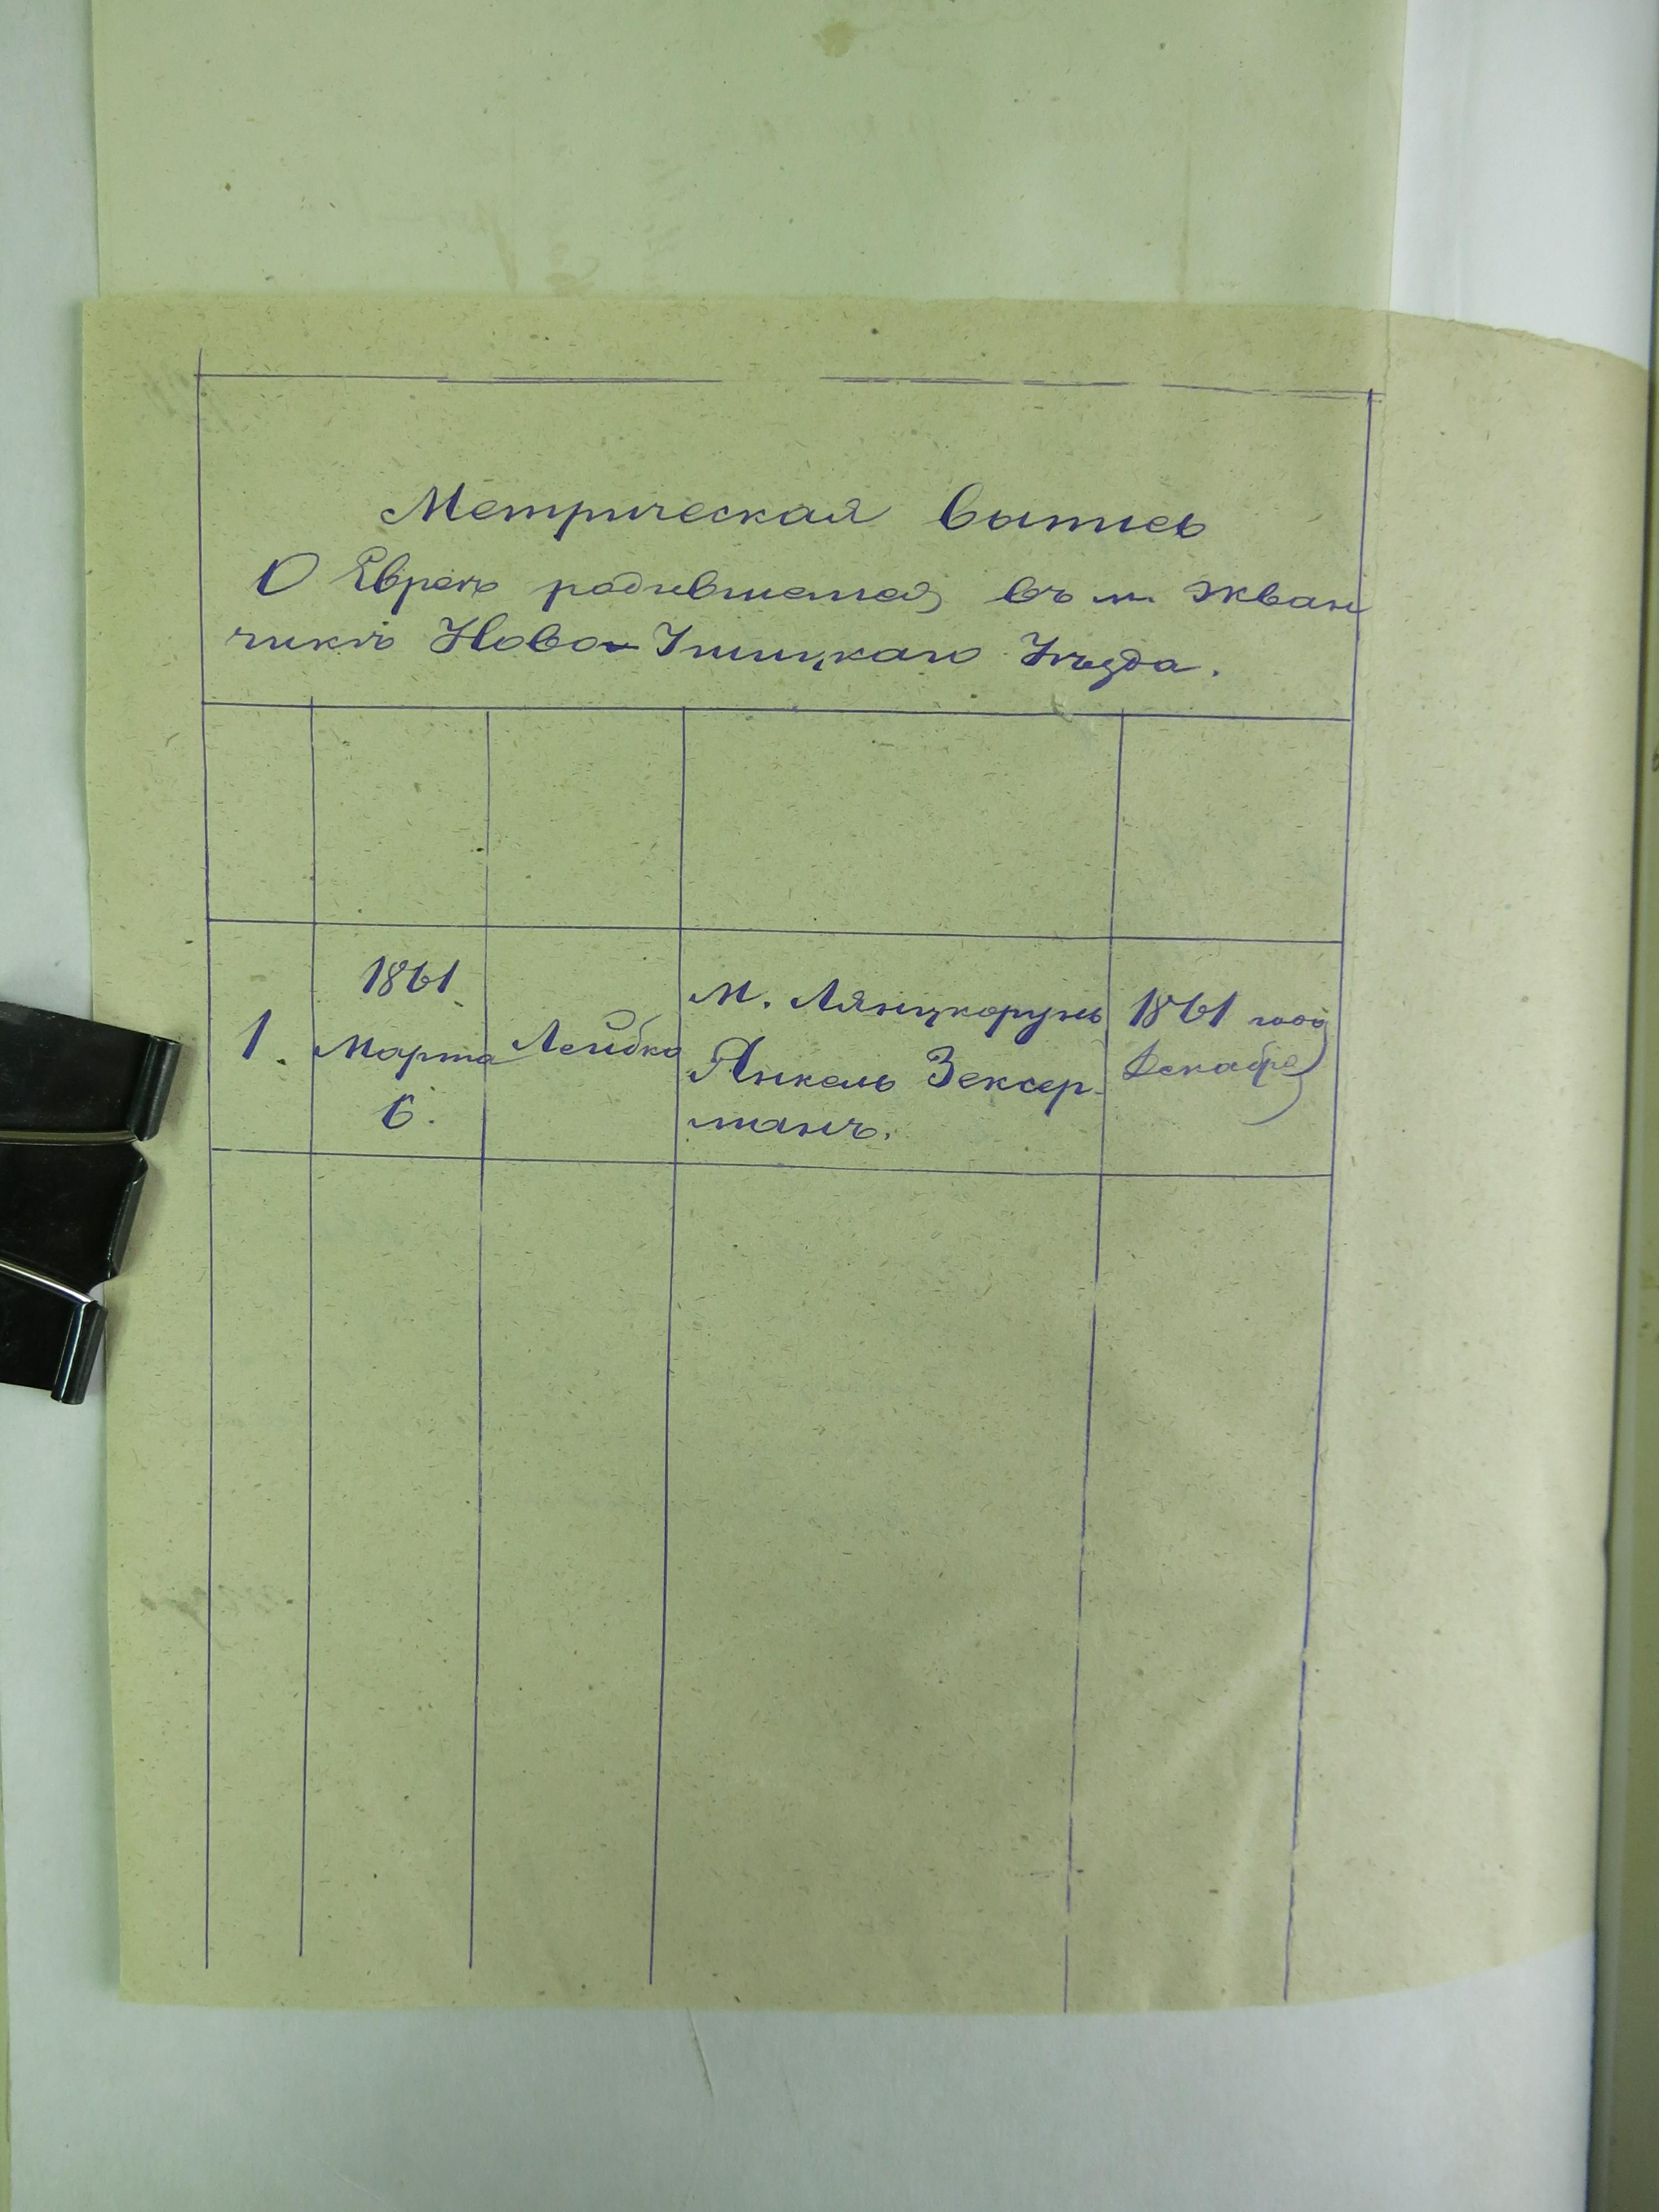 Метрическая выпись
О Евреѣ родившемся въ м. Жван
чикѣ Ново-Ушицкаго Уѣзда.
1.
1861
Марта
6.
Лейбко
М. Лянцкорунь
Янкель Зексер-
манъ.
1861 год
Декабря